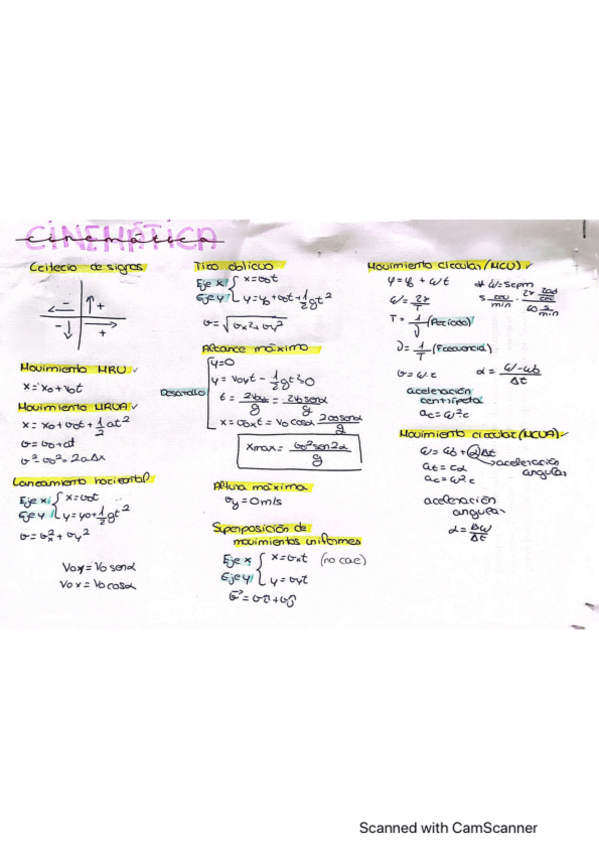 CINEMÁTICA
cinemática
Criterio de signos
- ↑ +
- ↓ +
Movimiento MRU ✓
x = x₀ + v₀t
Movimiento MRUA ✓
x = x₀ + v₀t + 1/2 at²
v = v₀ + at
v² - v₀² = 2aΔx
Lanzamiento horizontal
Eje x { x = v₀t
Eje y { y = y₀ + 1/2 gt²
v = vx² + vy²
V₀y = V₀ senα
V₀x = V₀ cosα
Tiro oblicuo
Eje x { x = v₀t
Eje y { y = y₀ + v₀t - 1/2 gt²
v = √vx² + vy²
Alcance máximo
Desarrollo
y = 0
y = V₀yt - 1/2 gt² = 0
t = 2V₀y/g = 2V₀ senα/g
x = v₀xt = V₀ cosα 2v₀ senα/g
Xmax = v₀² sen2α/g
Altura máxima
vy = 0 m/s
Superposición de
movimientos uniformes
Eje x { x = vxt (no cae)
Eje y { y = vyt
Movimiento circular (MCU) ✓
φ = φ₀ + ωt
ω = 2π/T
T = 1/ν (Periodo)
ν = 1/T (Frecuencia)
v = ω·r
α = ω - ω₀/Δt
aceleración
centrípeta
ac = ω²r
Movimiento circular (MCUA) ✓
ω = ω₀ + αΔt
→ aceleración
angular
at = rα
ac = ω²r
aceleración
angular
α = Δω/Δt
Scanned with CamScanner